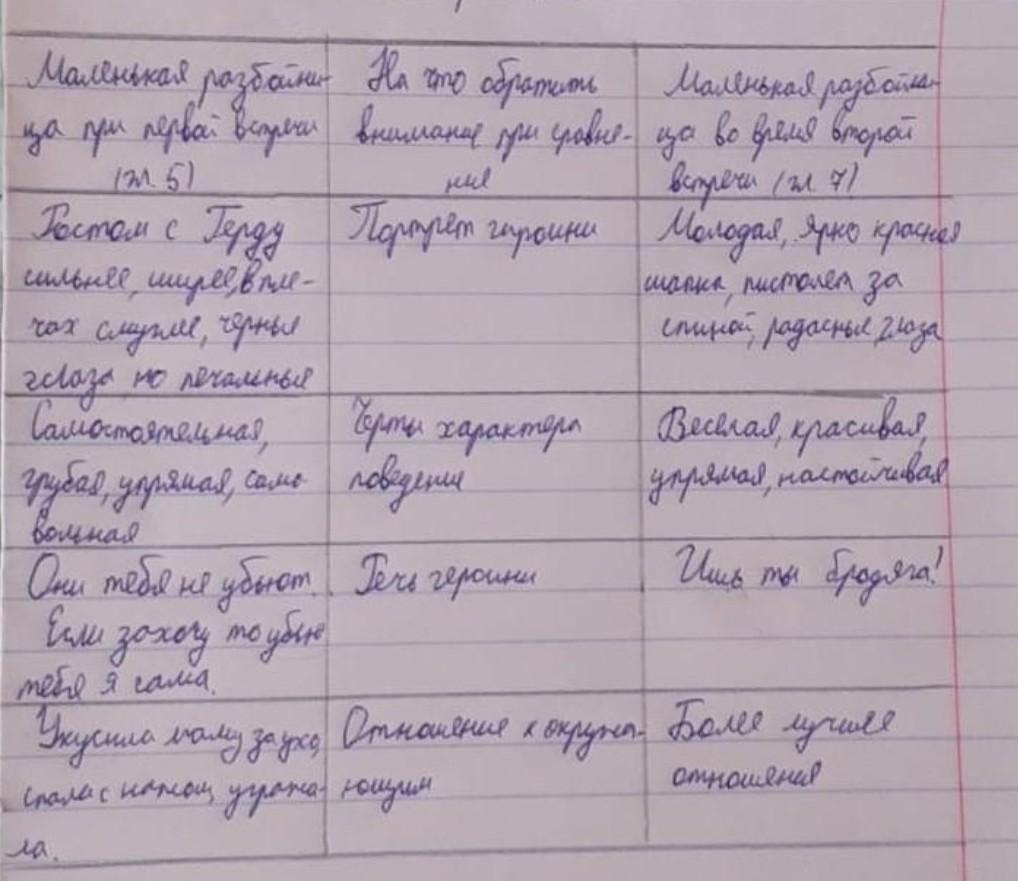 Маленькая разбойни-
ца при первой встречи
(гл. 5)
На что обратить
внимание при сравне-
ние
Маленькая разбойни-
ца во время второй
встречи (гл. 7)
Ростом с Герду
сильнее, шире в пле-
чах смуглее, черные
глаза но печальные
Портрет героини
Молодая, Ярко красная
шапка, пистолет за
спиной, радасные глаза
Самостоятельная,
грубая, упрямая, само-
вольная
Черты характера
поведения
Веселая, красивая,
упрямая, настойчивая
Они тебя не убьют.
Если захочу то убью
тебя я сама.
Речь героини
Ишь ты бродяга!
Укусила маму за ухо,
спала с ножом, угрожа-
ла.
Отношение к окружа-
ющим
Более лучшее
отношения